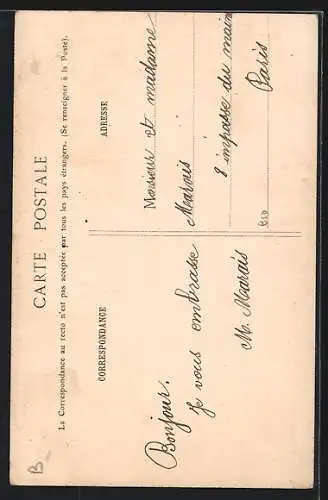 CARTE POSTALE
La Correspondance au recto n'est pas acceptée par tous les pays étrangers. (Se renseigner à la Poste).
CORRESPONDANCE
Bonjour.
Je vous embrasse
M. Marais
ADRESSE
Monsieur et madame
Marais
8 impasse du main
Paris
B